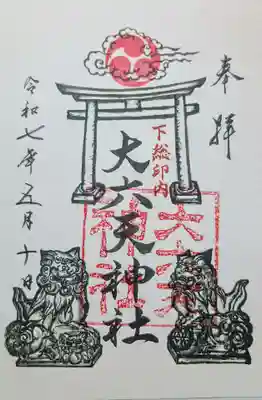 奉拝
下総印内
大六天神社
大六天
神社
令和七年五月十日